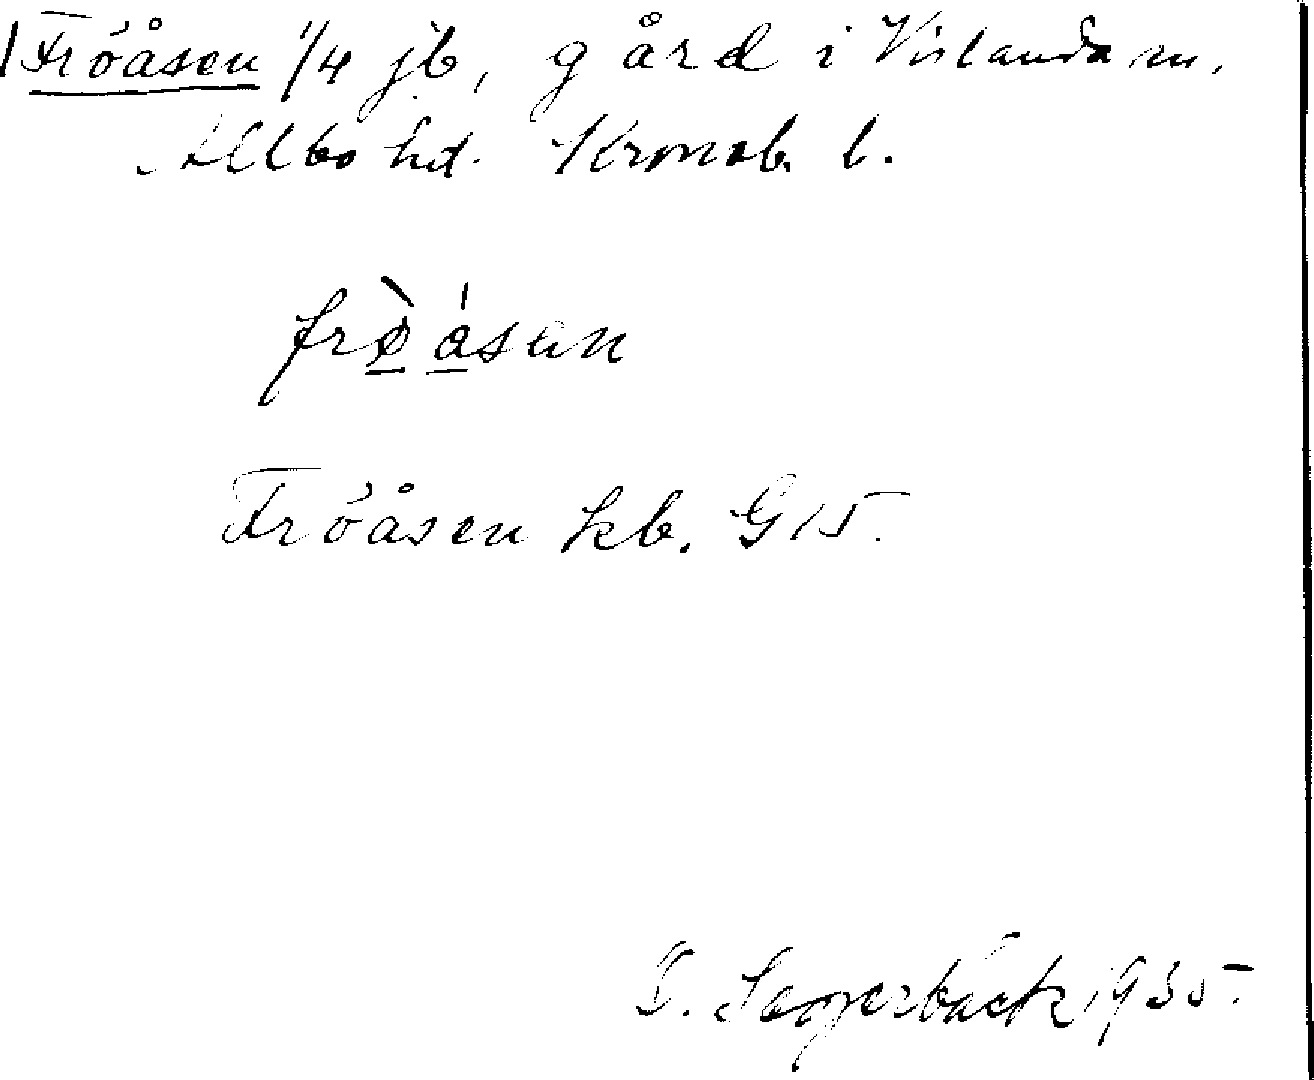 Fröåsen 1/4 jb, gård i Vislanda sn,
Allbo hd. Kronob. l.
frø̀ásan
Fröåsen kb. G 15.
1935.